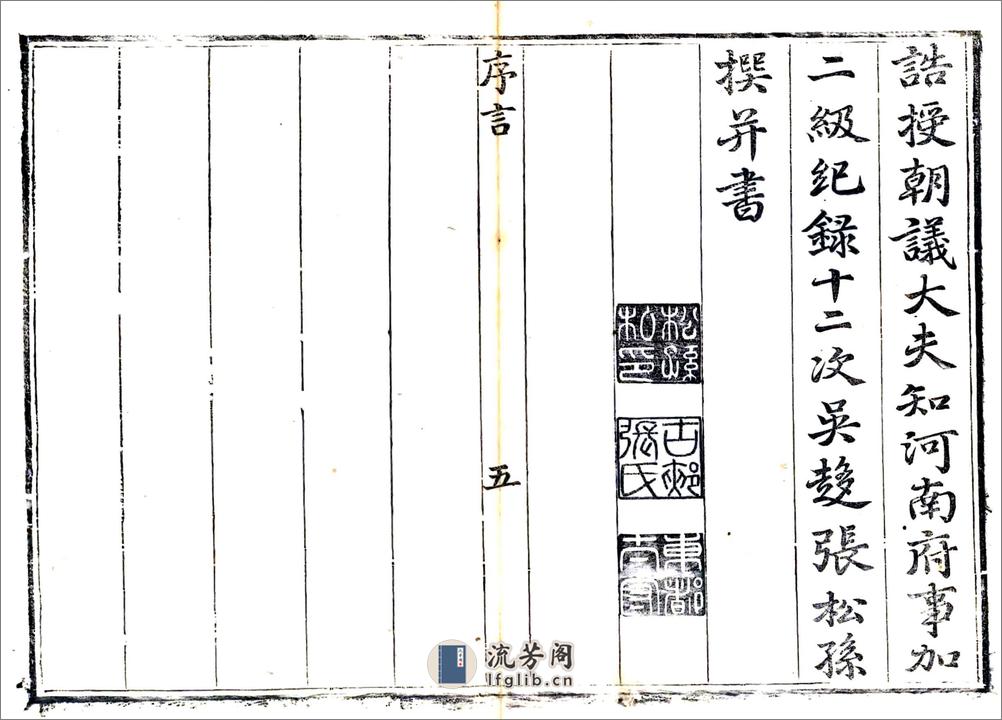 誥授朝議大夫知河南府事加
二級紀録十二次吳趍張松孫
撰并書
松孫私印
張氏
東都太守
序言
五
流芳阁
lfglib.cn